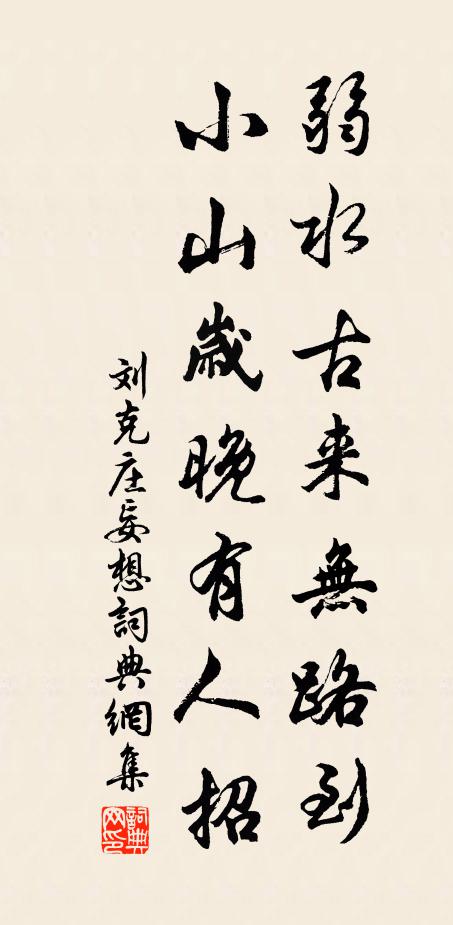 弱水古来無路到
小山歲晚有人招
刘克庄妄想詞典網集
詞典网印